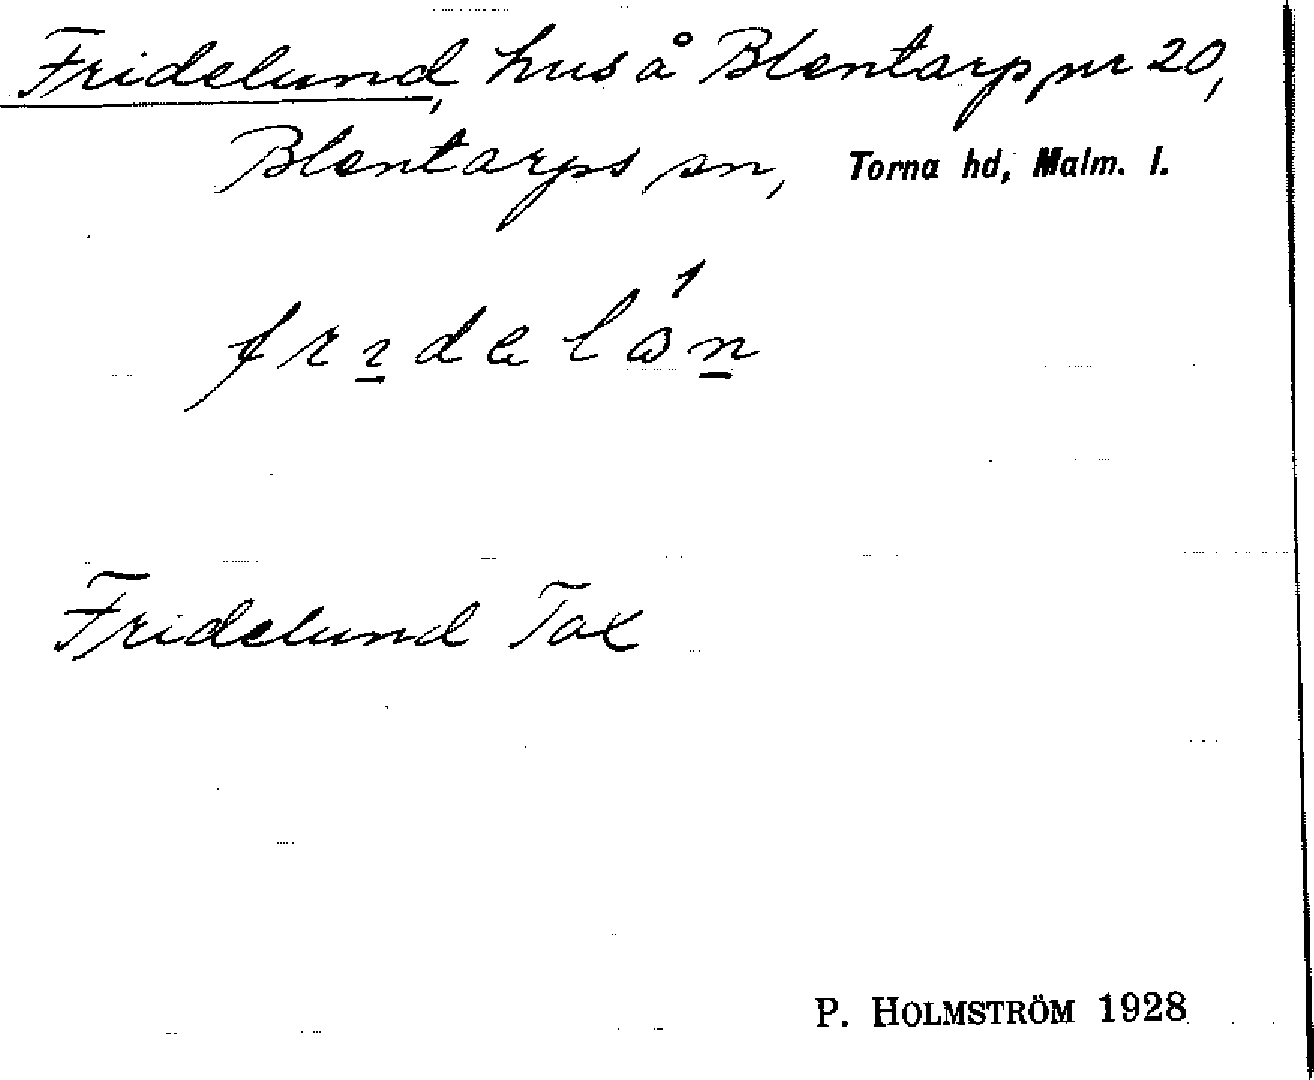 Fridelund, hus å Blentarp nr 20,
Blentarps sn, Torna hd, Malm. l.
Fridelund Tax
P. HOLMSTRÖM 1928